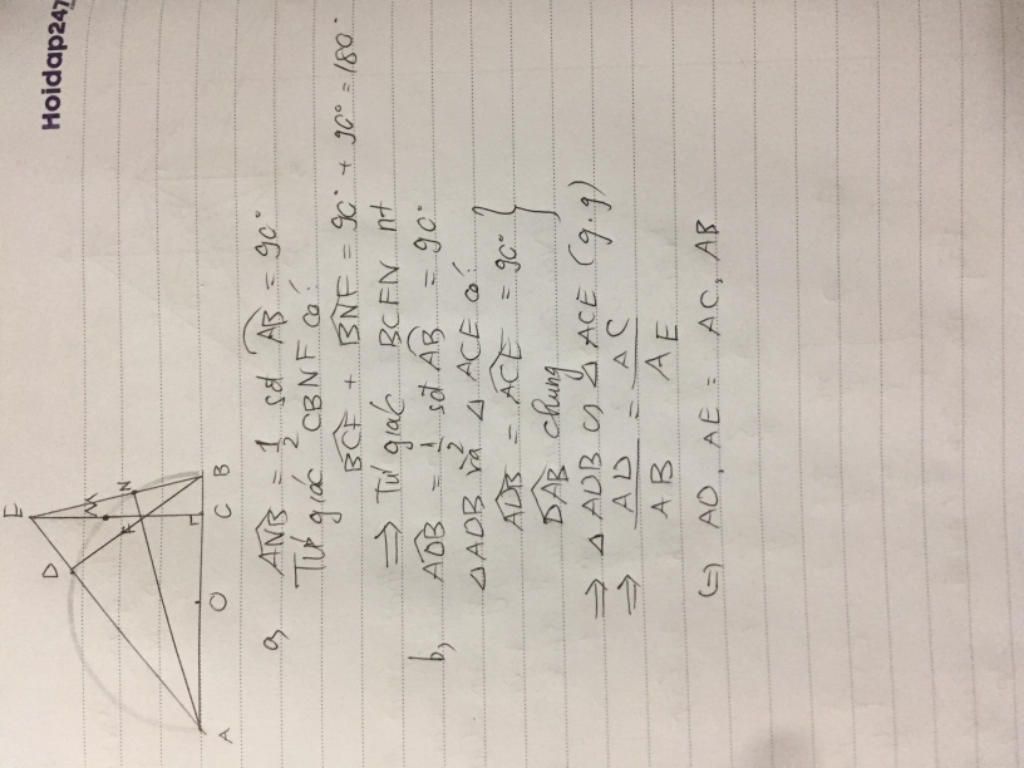 Hoidap247
E
D
M
N
F
A O C B
a, ANB = 1/2 sđ AB = 90°
Tứ giác CBNF có:
BCF + BNF = 90° + 90° = 180°
=> Tứ giác BCFN nt
b, ADB = 1/2 sđ AB = 90°
△ADB và △ACE có:
ADB = ACE = 90° }
DAB chung
=> △ADB ∽ △ACE (g.g)
=> AD/AB = AC/AE
(=) AD. AE = AC. AB